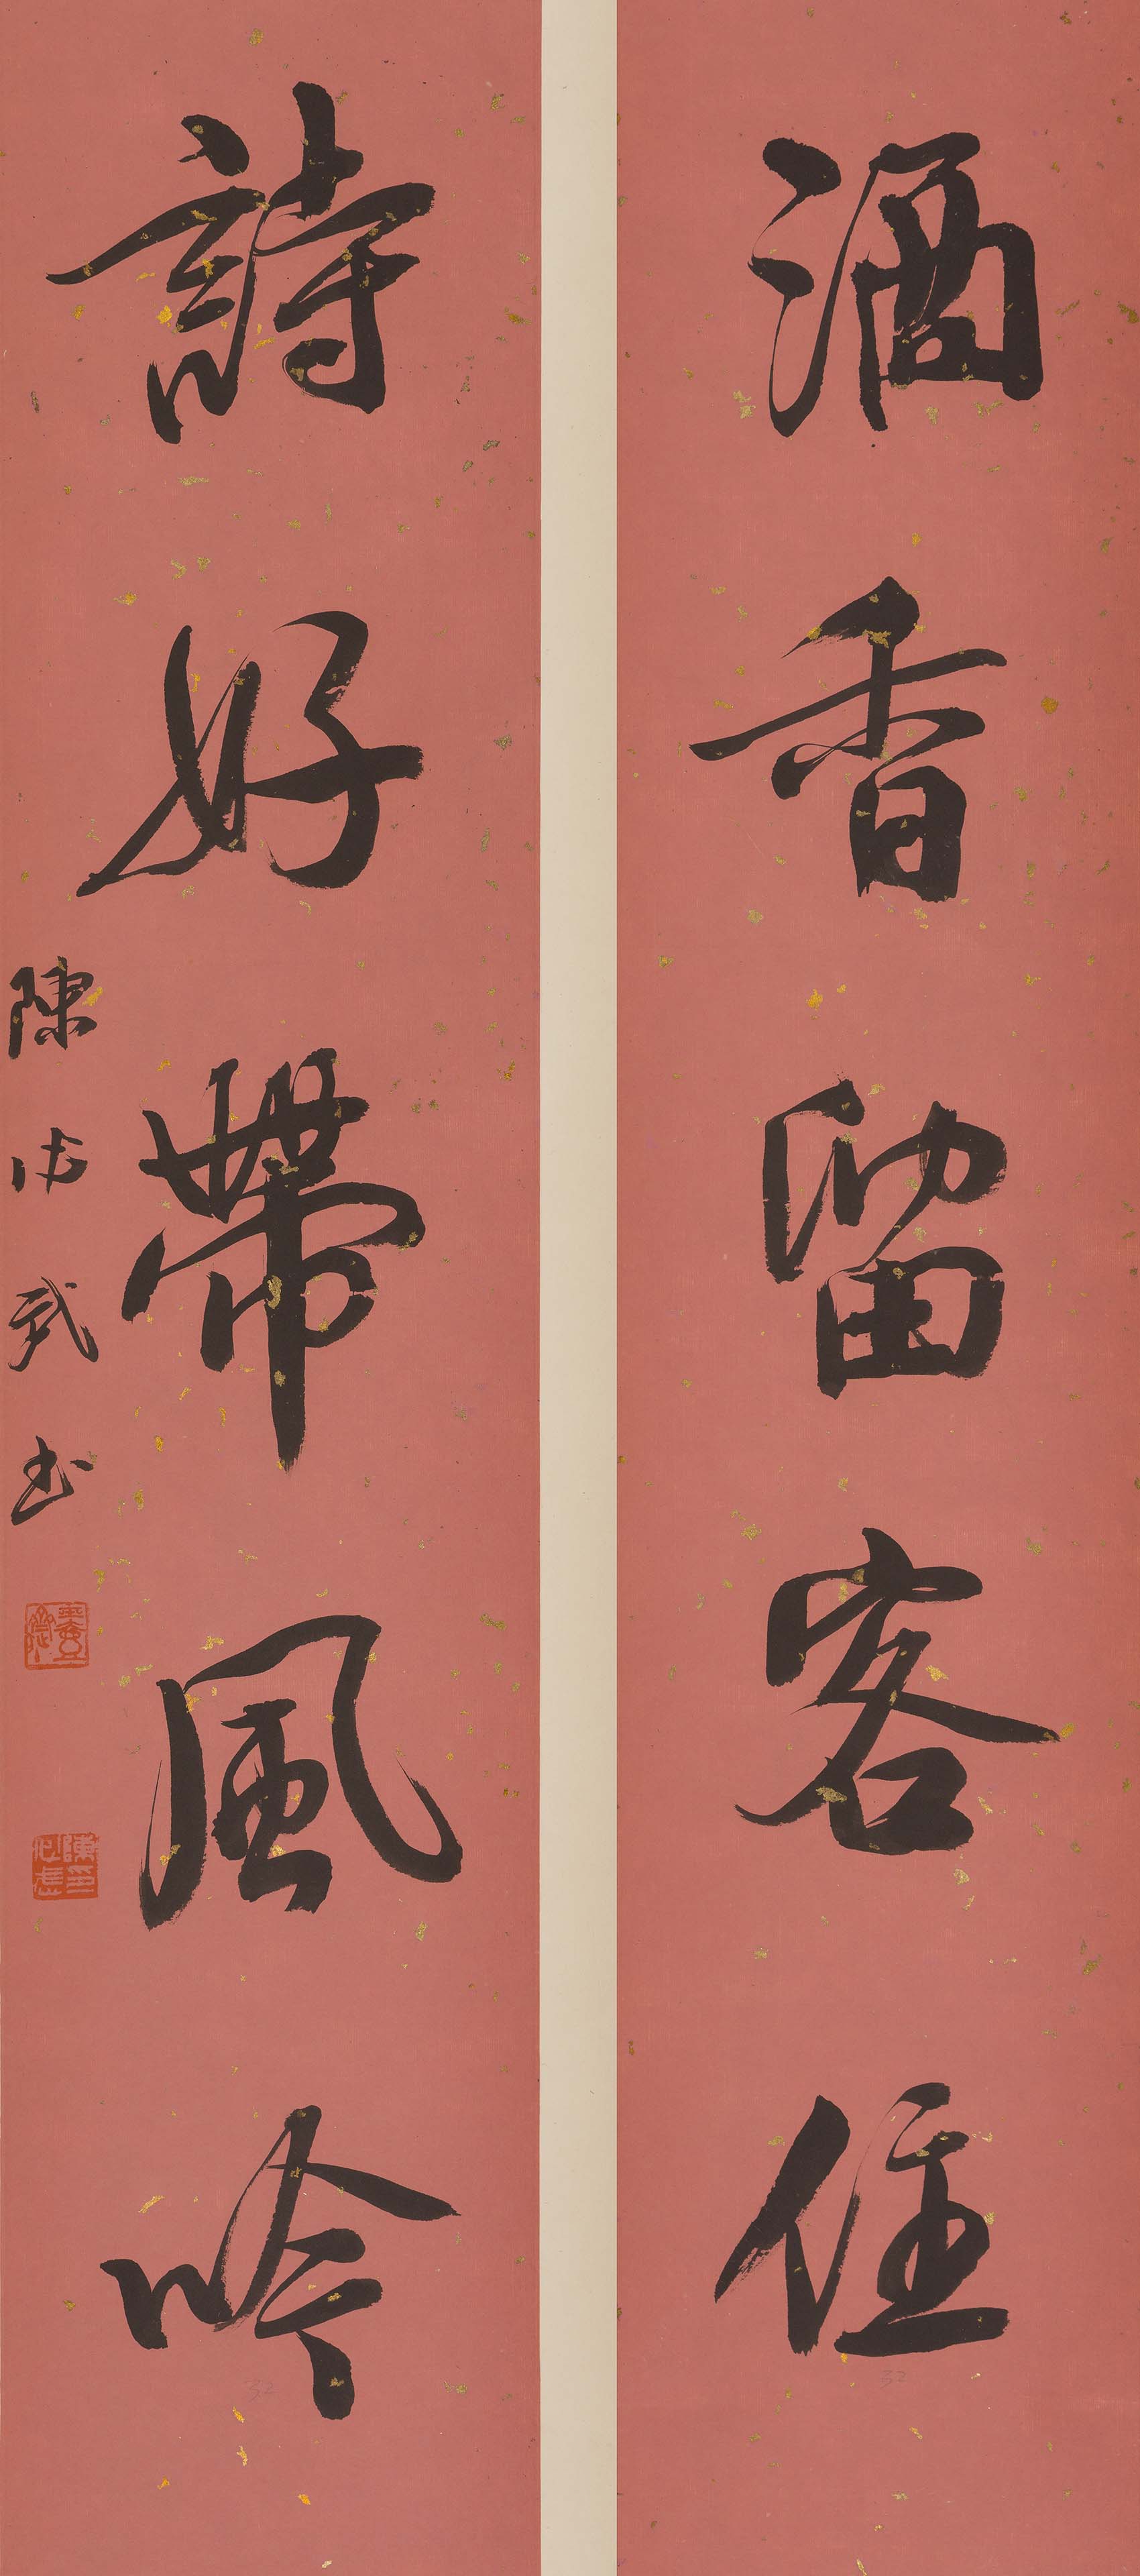 酒香留客住
詩好帶風吟
陳
武書